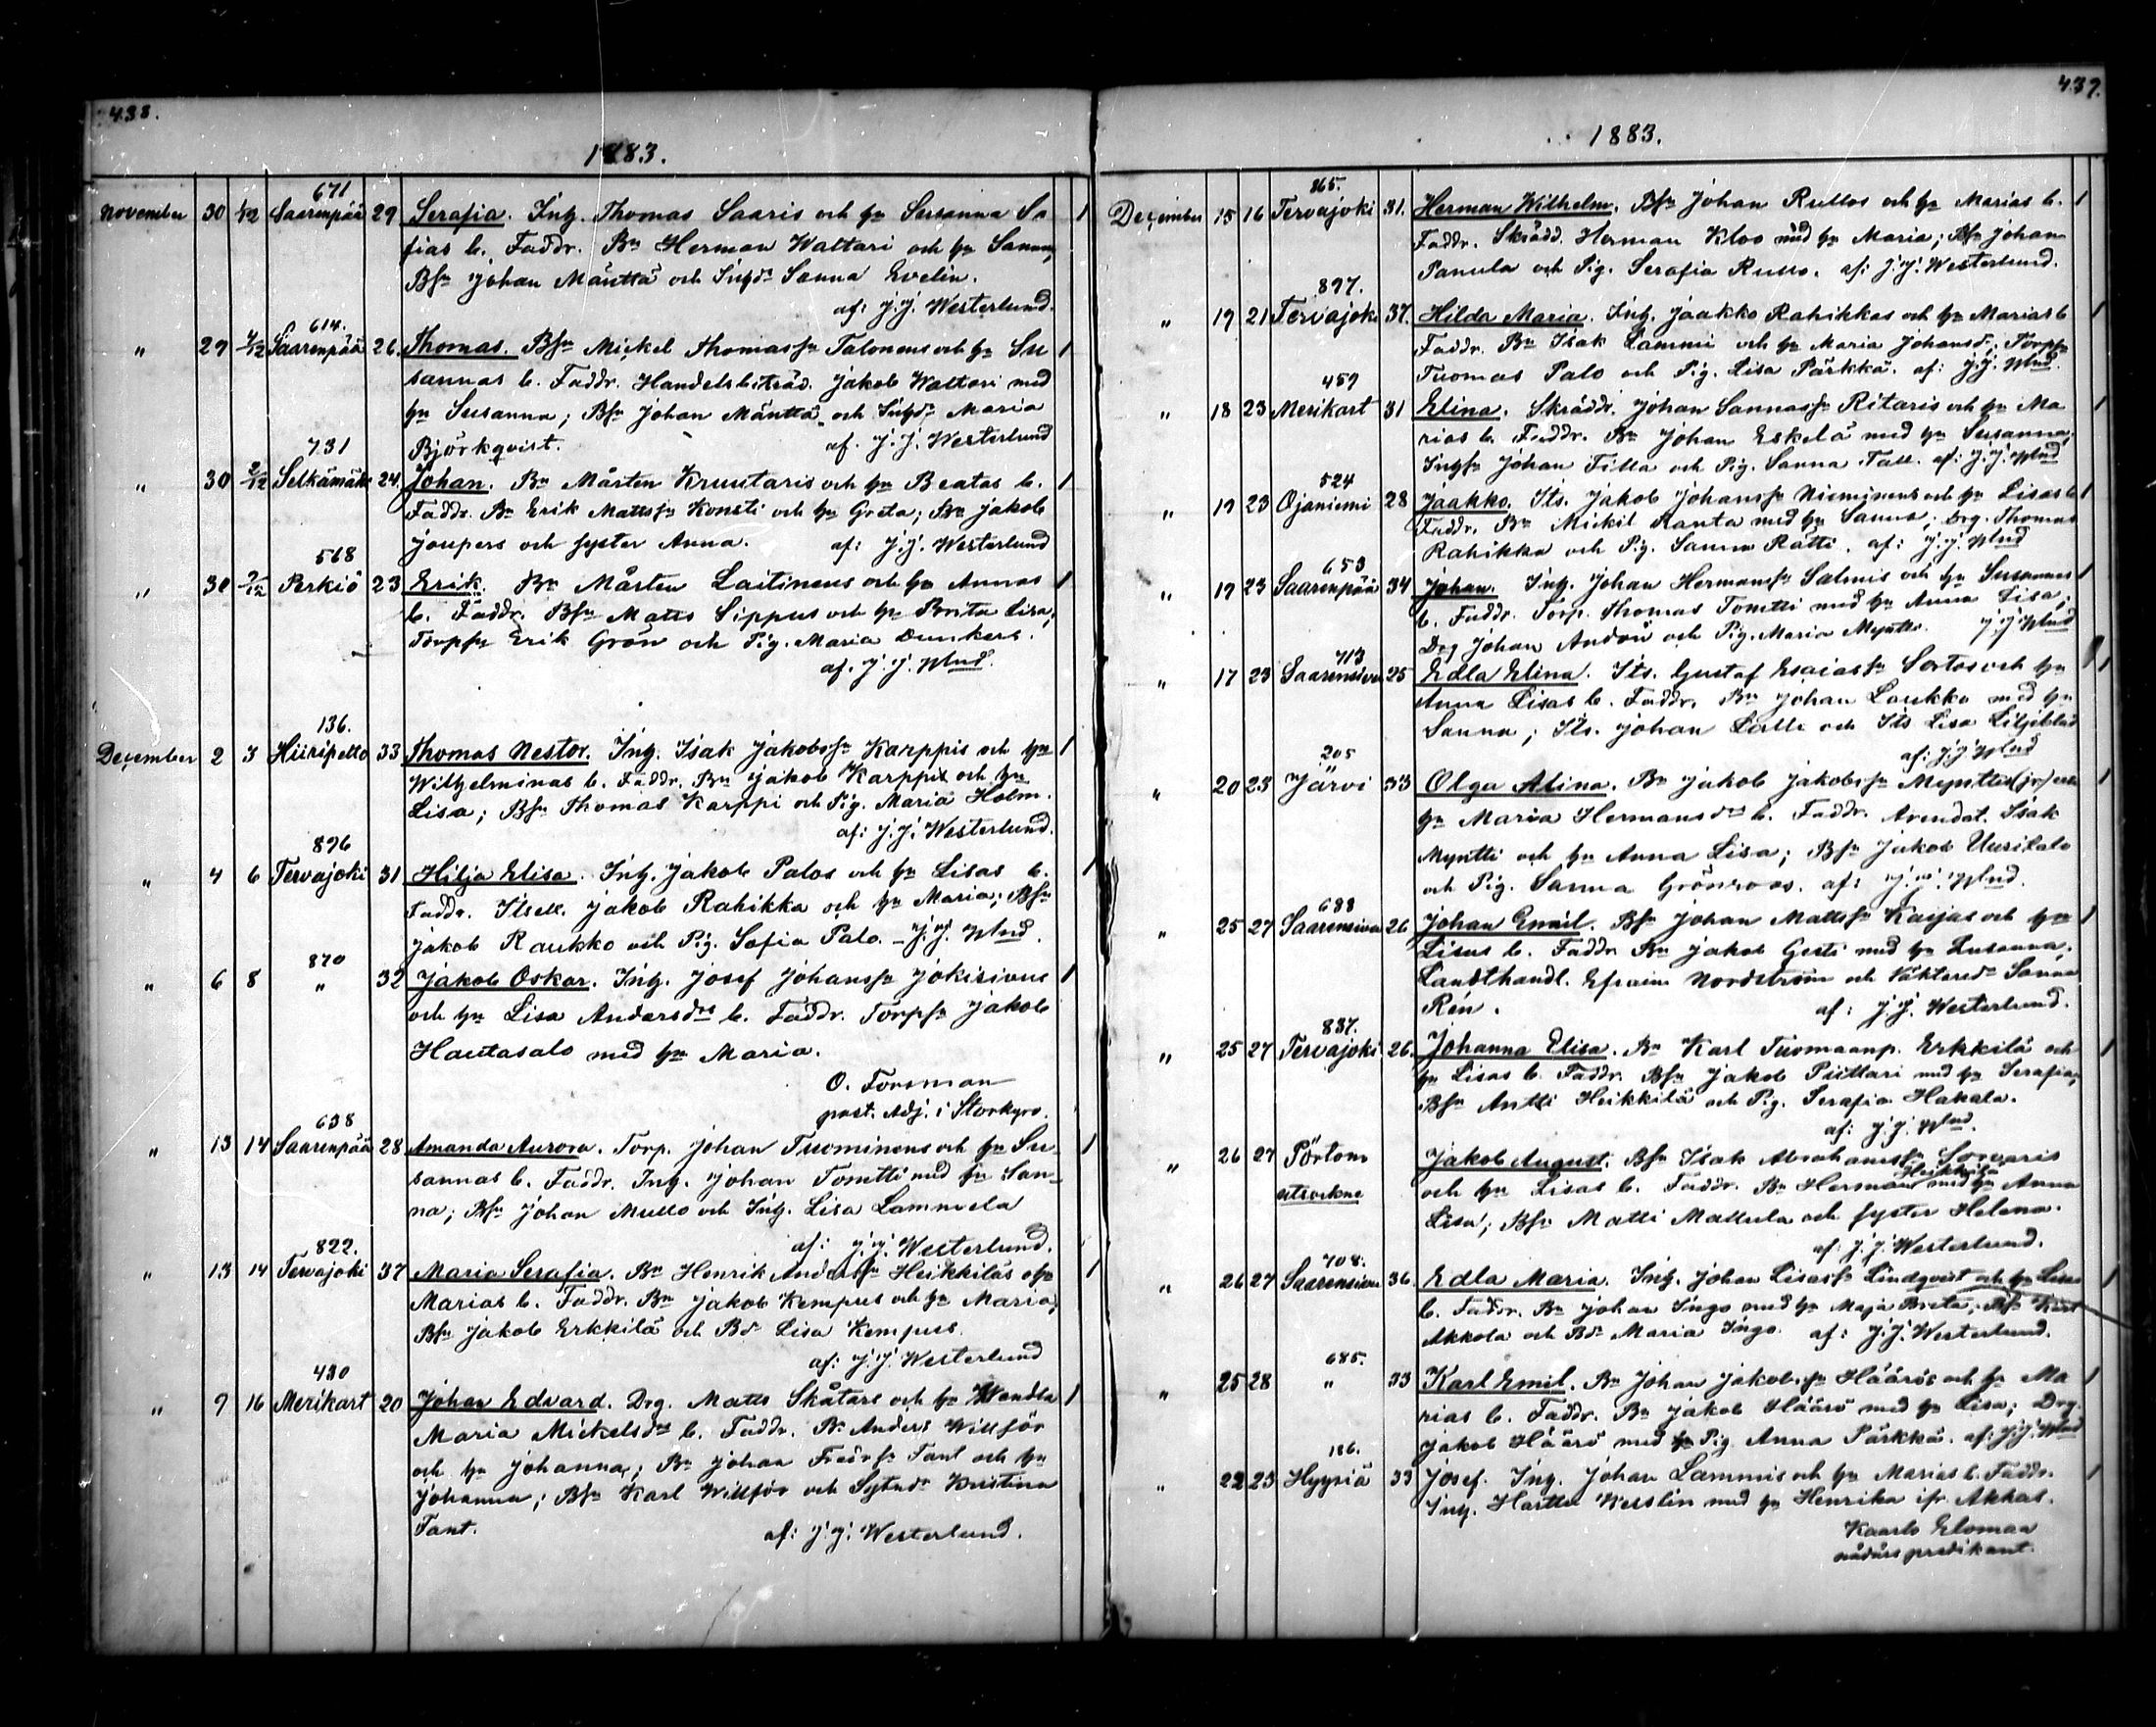 438.
1883.
671
November 30 1/12 Saarenpää 29 Serafia. Inh. Thomas Saaris och hu Susanna So
fias b. Faddr. Bn Herman Waltari och hu Sanna,
Bsn Johan Mänttä och Inhdr Sanna Evelin.
af: J.J. Westerlund.
614.
" 29 2/12 Saarenpää 26. Thomas. Bsn Mickel Thomassn Talonens och hu Su
sannas b. Faddr. Handelsbiträd. Jakob Waltari med
hu Susanna; Bsn Johan Mänttä och Inhdr Maria
Björkqvist. af. J.J. Westerlund
731
" 30 2/12 Selkämäki 24. Johan. Bn Mårten Kruutaris och hu Beatas b.
Faddr. Bn Erik Mattssn Konsti och hu Greta; Bn Jakob
Joupers och syster Anna. af: J.J. Westerlund
568
" 30 2/12 Perkiö 23 Erik. Bn Mårten Laitinens och hu Annas
b. Faddr. Bsn Matts Sippus och hu Brita Lisa;
Torpsn Erik Grön och Pig. Maria Dunkers.
af. J.J. Wlund.
136.
December 2 3 Hiiripelto 33 Thomas Nestor. Inh. Isak Jakobssn Karppis och hu
Wilhelminas b. Faddr. Bn Jakob Karppi och hu
Lisa; Bsn Thomas Karppi och Pig. Maria Holm.
af: J.J. Westerlund.
896
" 4 6 Tervajoki 31 Hilja Elisa. Inh. Jakob Palos och hu Lisas b.
Faddr. Itsell. Jakob Rahikka och hu Maria; Bsn
Jakob Raukko och Pig. Sofia Palo. – J.J. Wlund.
870
" 6 8 " 32 Jakob Oskar. Inh. Josef Johanssn Jokisivus
och hu Lisa Andersdrs b. Faddr. Torpsn Jakob
Hautasalo med hu Maria.
O. Forsman
past. Adj. i Storkyro.
638
" 13 14 Saarenpää 28 Amanda Aurora. Torp. Johan Tuominens och hu Su-
sannas b. Faddr. Inh. Johan Tomtti med hu San-
na; Bsn Johan Mullo och Inh. Lisa Lammela
af: J.J. Westerlund.
822.
" 13 14 Tervajoki 37 Maria Serafia. Bn Henrik Anderssn Heikkiläs o hu
Marias b. Faddr. Bn Jakob Kempus och hu Maria;
Bsn Jakob Erkkilä och Bdr Lisa Kempus.
af: J.J. Westerlund
430
" 9 16 Merikart 20 Johan Edvard. Drg. Matts Skåtars och hu Wendla
Maria Mickelsdrs b. Faddr. Bn Anders Willför
och hu Johanna; Bn Johan Fredrsn Tant och hu
Johanna; Bsn Karl Willför och Kristina
Tant. af: J.J. Westerlund.
439.
1883.
865.
December 15 16 Tervajoki 31. Herman Wilhelm. Bsn Johan Rullos och hu Marias b.
Faddr. Skrädd. Herman Kloo med hu Maria; Bsn Johan
Panula och Pig. Serafia Rullo. af: J.J. Westerlund.
897.
" 19 21 Tervajoki 37. Hilda Maria. Inh. Jaakko Rahikkas och hu Marias b
Faddr. Bn Isak Lammi och hu Maria Johansdr; Torpsn
Tuomas Palo och Pig. Lisa Pärkkä. af: J.J. Wlund.
459
" 18 23 Merikart 31 Elina. Skräddr. Johan Sannassn Ritaris och hu Ma
rias b. Faddr. Bn Johan Eskelä med hu Susanna;
Inhsn Johan Filla och Pig. Sanna Tall. af: J.J. Wlund
524
" 19 23 Ojaniemi 28 Jaakko. Its. Jakob Johanssn Nieminens och hu Lisas b
Faddr. Bn Mickil Ranta med hu Sanna; Drg. Thomas
Rahikka och Pig. Sanna Rätti. af: J.J. Wlund
653
" 19 23 Saarenpää 34 Johan. Inh. Johan Hermanssn Salmis och hu Susannas
b. Faddr. Torp. Thomas Tomtti med hu Anna Lisa;
Drg Johan Andén och Pig. Maria Myntti. J.J. Wlund
713
" 17 23 Saarensivu 25 Edla Elina. Its. Gustaf Esaiassn Sortos och hu
Anna Lisas b. Faddr. Bn Johan Laukko med hu
Sanna; Its. Johan Lalli och Its Lisa Liljeblad
af: J.J. Wlund
205
" 20 23 Järvi 33 Olga Alina. Bn Jakob Jakobssn Mynttis (jr) och
hu Maria Hermansdrs b. Faddr. Arendat. Isak
Myntti och hu Anna Lisa; Bsn Jakob Uusitalo
och Pig. Sanna Grönroos. af: J.J. Wlund.
688
" 25 27 Saarensivu 26. Johan Emil. Bsn Johan Mattssn Kaijas och hu
Lisas b. Faddr. Bn Jakob Gesti med hu Susanna;
Landthandl. Efraim Nordström och Väktaredr Sanna
Rén. af: J.J. Westerlund.
837.
" 25 27 Tervajoki 26. Johanna Elisa. Bn Karl Tuomaanp. Erkkilä och
hu Lisas b. Faddr. Bsn Jakob Piittari med hu Serafia;
Bsn Antti Heikkilä och Pig. Serafia Hakala.
af: J.J. Wlund.
" 26 27 Pörtom Jakob August. Bsn Isak Abrahamssn Sorvaris
Heikkilä
utsockne och hu Lisas b. Faddr. Bn Herman med hu Anna
Lisa; Bsn Matti Mattula och syster Helena.
af: J.J. Westerlund.
708.
" 26 27 Saarensivu 36. Edla Maria. Inh. Johan Lisassn Lindqvist och hu Lisas
b. Faddr. Bn Johan Ingo med hu Maja Breta; Bsn Karl
Akkola och Bdr Maria Ingo. af: J.J. Westerlund.
685.
" 25 28 " 33 Karl Emil. Bn Johan Jakobssn Häärös och hu Ma
rias b. Faddr. Bn Jakob Häärö med hu Lisa; Drg.
Jakob Häärö med Pig. Anna Pärkkä. af: J.J. Wlund
186.
" 22 23 Hyyriä 33 Josef. Inh. Johan Lammis och hu Marias b. Faddr.
Inh. Wesslin med hu Henrika ifr. Akkas.
Kaarlo Elomaa
nådårspredikant.